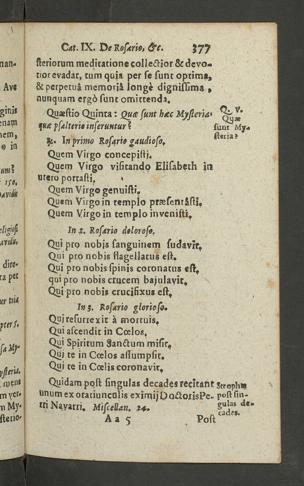 Cat. IX. De Rosario, &c. 377
steriorum meditatione collectior & devo-
tior evadat, tum quia per se sunt optima,
& perpetuâ memoriâ longè dignissima,
nunquam ergò sunt omittenda.
Quæstio Quinta: Quæ sunt hæc Mysteria
quæ psalterio inseruntur?
Q. v.
Quæ
sunt My-
steria?
R. In primo Rosario gaudioso.
Quem Virgo concepisti.
Quem Virgo visitando Elisabeth in
utero portasti,
Quem Virgo genuisti.
Quem Virgo in templo præsentâsti.
Quem Virgo in templo invenisti.
In 2. Rosario doloroso.
Qui pro nobis sanguinem sudavit,
Qui pro nobis flagellatus est,
Qui pro nobis spinis coronatus est,
qui pro nobis crucem bajulavit,
Qui pro nobis crucifixus est,
In 3. Rosario glorioso.
Qui resurrexit à mortuis,
Qui ascendit in Cœlos,
Qui Spiritum Sanctum misit,
Qui te in Cœlos assumpsit,
Qui te in Cœlis coronavit,
Quidam post singulas decades recitant
unum ex oratiunculis eximij Doctoris Pe-
tri Navarri. Miscellan. 24.
Strophæ
post sin-
gulas de-
cades.
Aa 5 Post